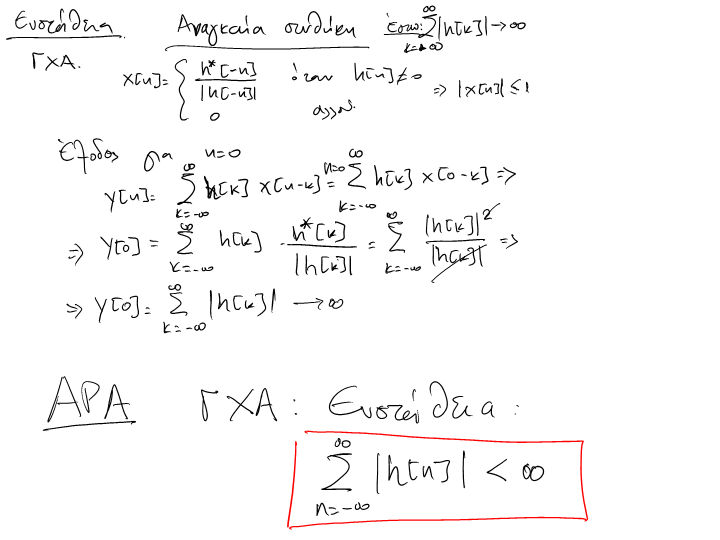 Ευστάθεια Αναγκαία συνθήκη Έστω: ∑_{k=-∞}^{∞} |h[k]| → ∞
ΓΧΑ.
x[n] = { h*[-n] / |h[-n]| όταν h[n] ≠ 0
0 αλλού. ⇒ |x[n]| ≤ 1
Έξοδος για n=0
y[n] = ∑_{k=-∞}^{∞} h[k] x[n-k] =^{n=0} ∑_{k=-∞}^{∞} h[k] x[0-k] ⇒
⇒ y[0] = ∑_{k=-∞}^{∞} h[k] · h*[k] / |h[k]| = ∑_{k=-∞}^{∞} |h[k]|^2 / |h[k]| ⇒
⇒ y[0] = ∑_{k=-∞}^{∞} |h[k]| → ∞
ΑΡΑ ΓΧΑ: Ευστάθεια:
∑_{n=-∞}^{∞} |h[n]| < ∞